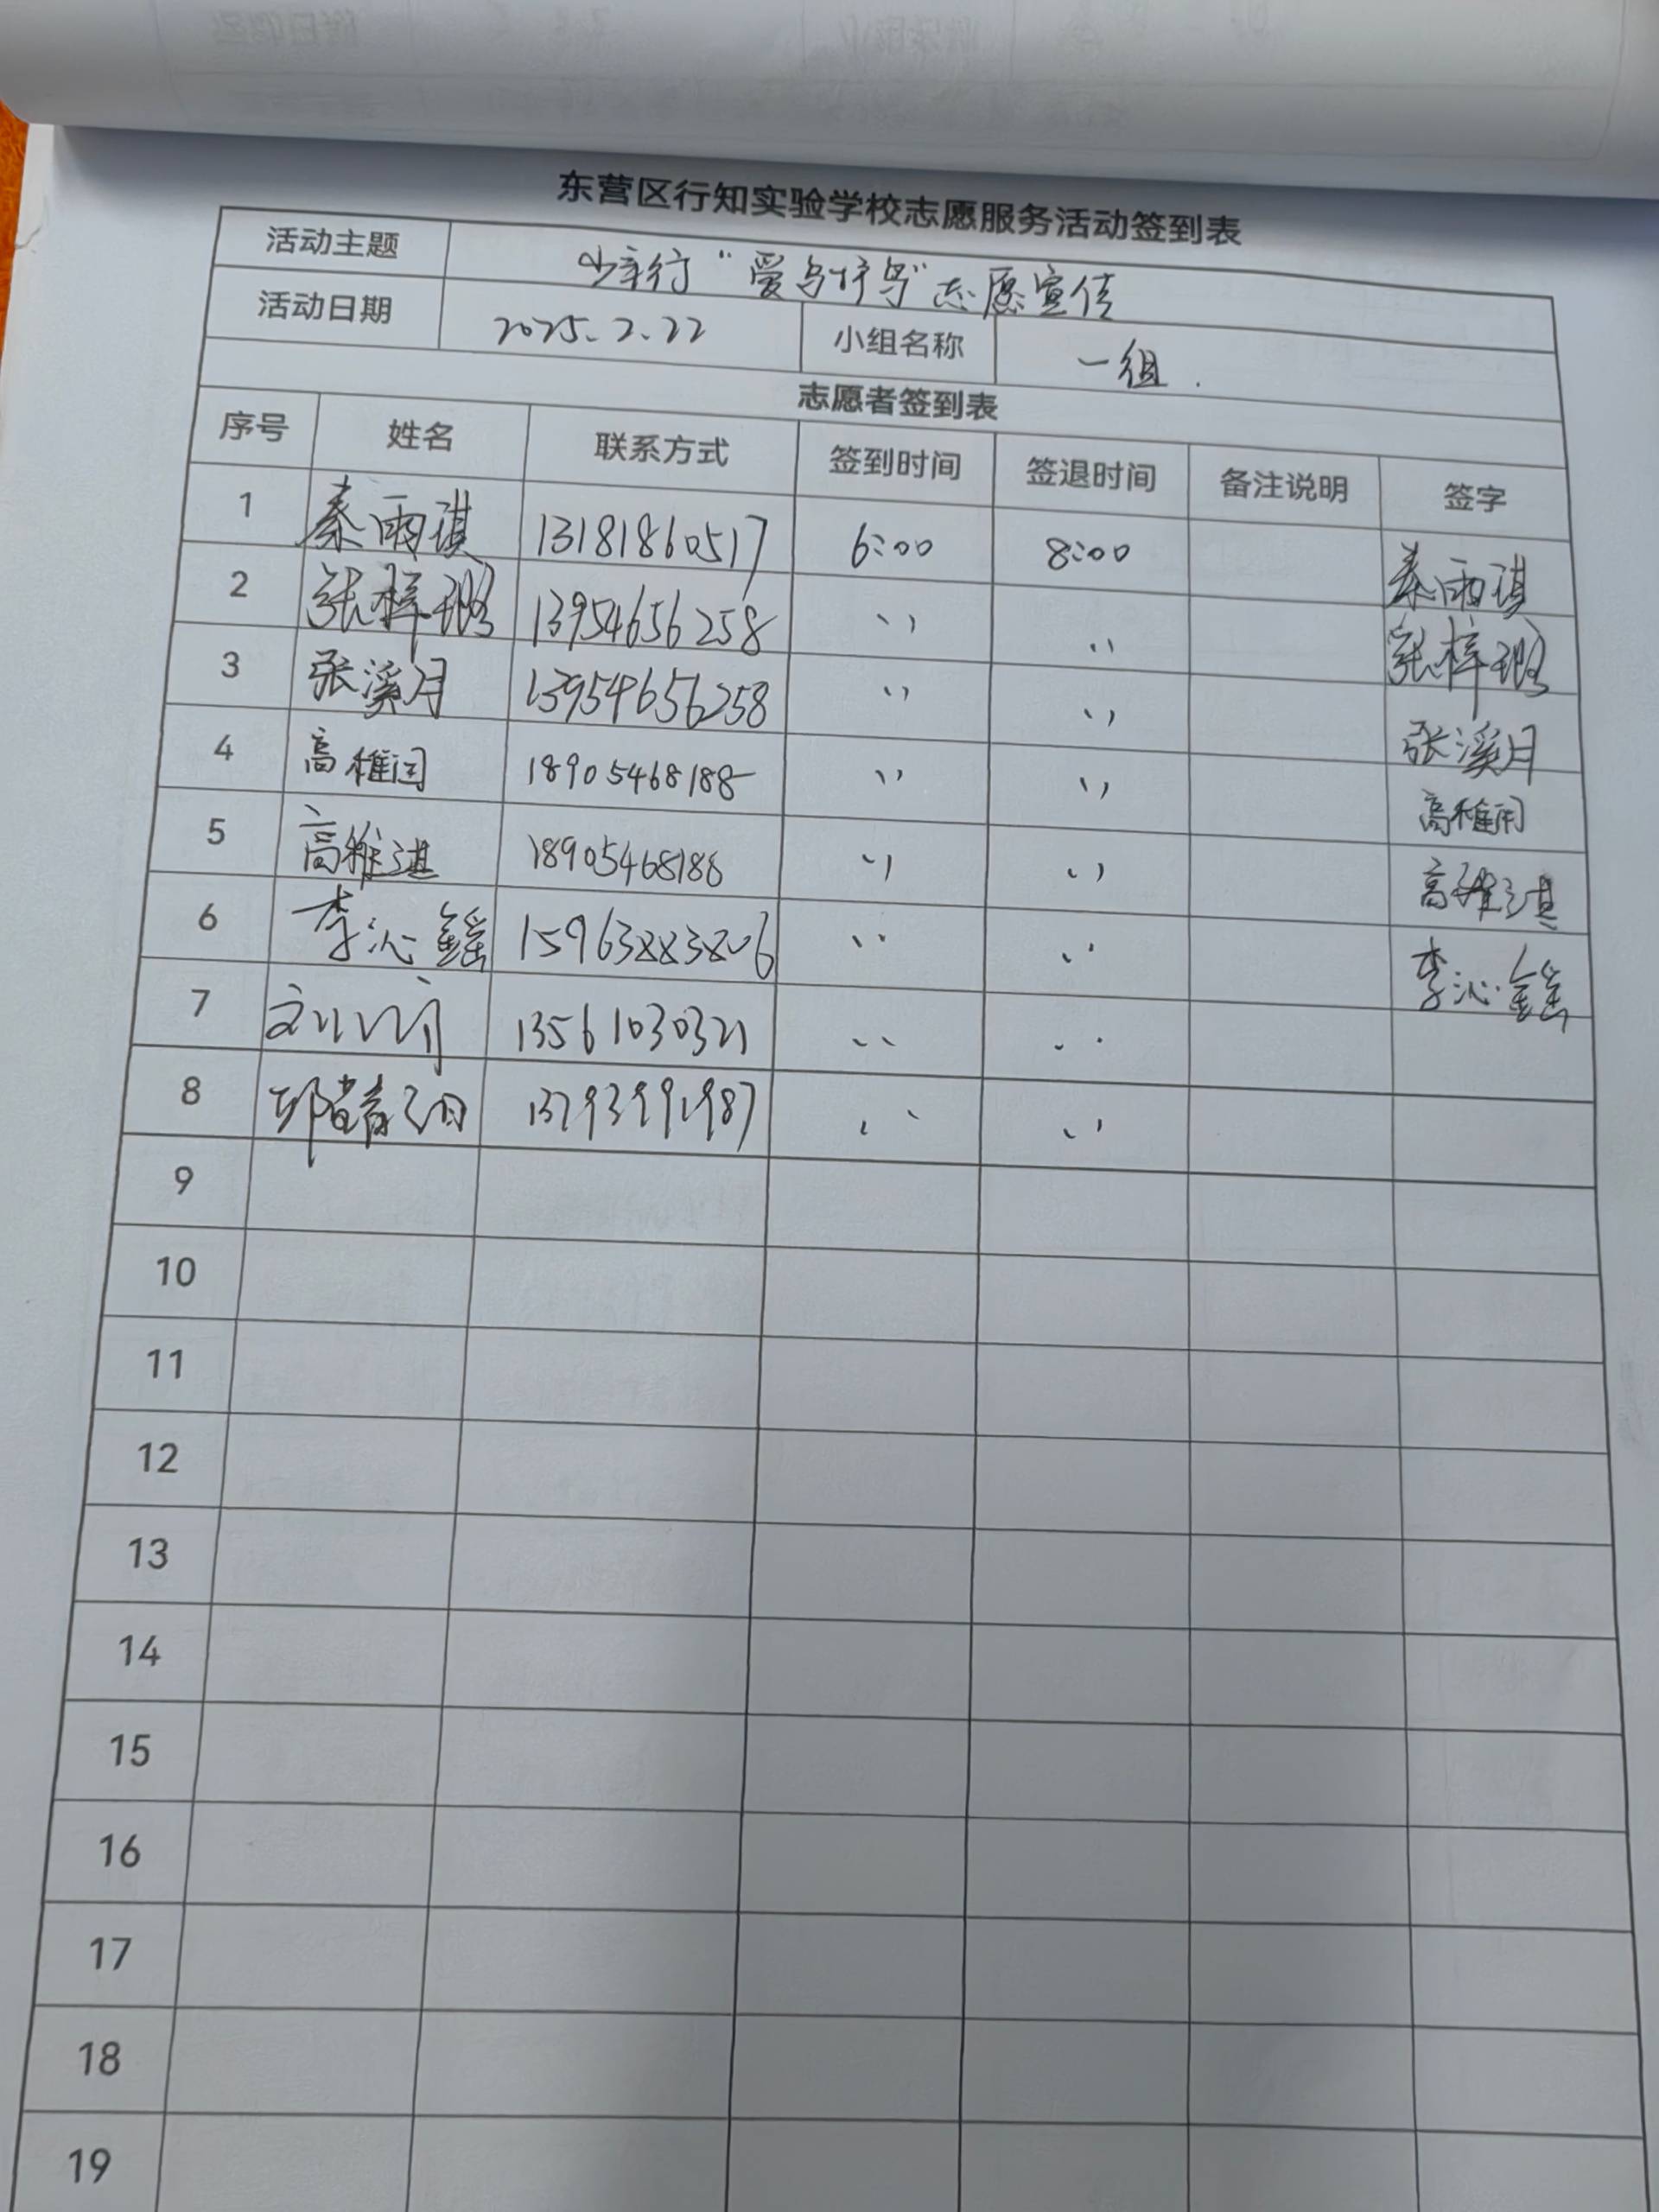 东营区行知实验学校志愿服务活动签到表
活动主题 行“爱鸟护鸟”志愿宣传
活动日期 2025.2.22 小组名称 一组.
志愿者签到表
序号 姓名 联系方式 签到时间 签退时间 备注说明 签字
1 秦雨琪 13181860517 6:00 8:00 秦雨琪
2 张梓 13954656258 〃 〃 张梓
3 张溪月 13954656258 〃 〃 张溪月
4 高 18905468188 〃 〃 高
5 高雅淇 18905468188 〃 〃 高雅淇
6 李沁鑫 〃 〃 李沁鑫
7 13561030321 〃 〃
8 13793991987 〃 〃
9
10
11
12
13
14
15
16
17
18
19